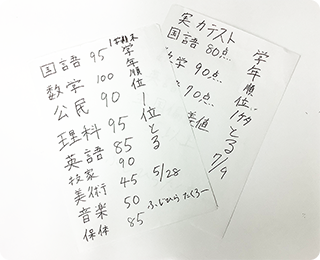 国語 95
数学 100
公民 90
理科 95
英語 85
技家 90
美術 45
音楽 50
保体 85
1学期末
学年順位一位とる
5/28
ふじひら たくろー
実力テスト
国語 80点
数学 90点
70点
学年順位1ケタとる
7/9